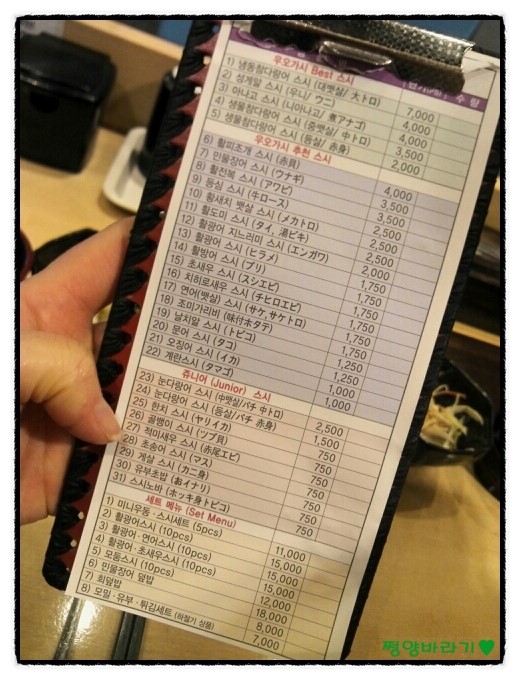 우오가시 Best 스시
1) 냉동참다랑어 스시 (대뱃살/ 大トロ) 7,000
2) 성게알 스시 (우니/ ウニ) 4,000
3) 아나고 스시 (니아나고/ 煮アナゴ) 4,000
4) 생물참다랑어 스시 (중뱃살/ 中トロ) 3,500
5) 생물참다랑어 스시 (등살/ 赤身) 2,000
우오가시 추천 스시
6) 활피조개 스시 (赤貝) 4,000
7) 민물장어 스시 (ウナギ) 3,500
8) 활전복 스시 (アワビ) 3,500
9) 등심 스시 (牛ロース) 2,500
10) 황새치 뱃살 스시 (メカトロ) 2,500
11) 활도미 스시 (タイ, 湯ビキ) 2,500
12) 활광어 지느러미 스시 (エンガワ) 2,000
13) 활광어 스시 (ヒラメ) 1,750
14) 활방어 스시 (ブリ) 1,750
15) 초새우 스시 (スシエビ) 1,750
16) 치히로새우 스시 (チヒロエビ) 1,750
17) 연어(뱃살) 스시 (サケ,サケトロ) 1,750
18) 조미가리비 스시 (味付ホタテ) 1,750
19) 날치알 스시 (トビコ) 1,250
20) 문어 스시 (タコ) 1,250
21) 오징어 스시 (イカ) 1,000
22) 계란스시 (タマゴ) 1,000
쥬니어 (Junior) 스시
23) 눈다랑어 스시 (中뱃살/バチ 中トロ) 2,500
24) 눈다랑어 스시 (등살/バチ 赤身) 1,500
25) 한치 스시 (ヤリイカ) 750
26) 골뱅이 스시 (ツブ貝) 750
27) 적미새우 스시 (赤尾エビ) 750
28) 초송어 스시 (マス) 750
29) 게살 스시 (カニ身) 750
30) 유부초밥 (おイナリ) 750
31) 스시노바 (ホッキ身トビコ) 750
세트 메뉴 (Set Menu)
1) 미니우동·스시세트 (5pcs) 11,000
2) 활광어스시 (10pcs) 15,000
3) 활광어·연어스시 (10pcs) 15,000
4) 활광어·초새우스시 (10pcs) 15,000
5) 모듬스시 (10pcs) 12,000
6) 민물장어 덮밥 18,000
7) 회덮밥 8,000
8) 모밀·유부·튀김세트 (하절기 상품) 7,000
쩡양바라기♥